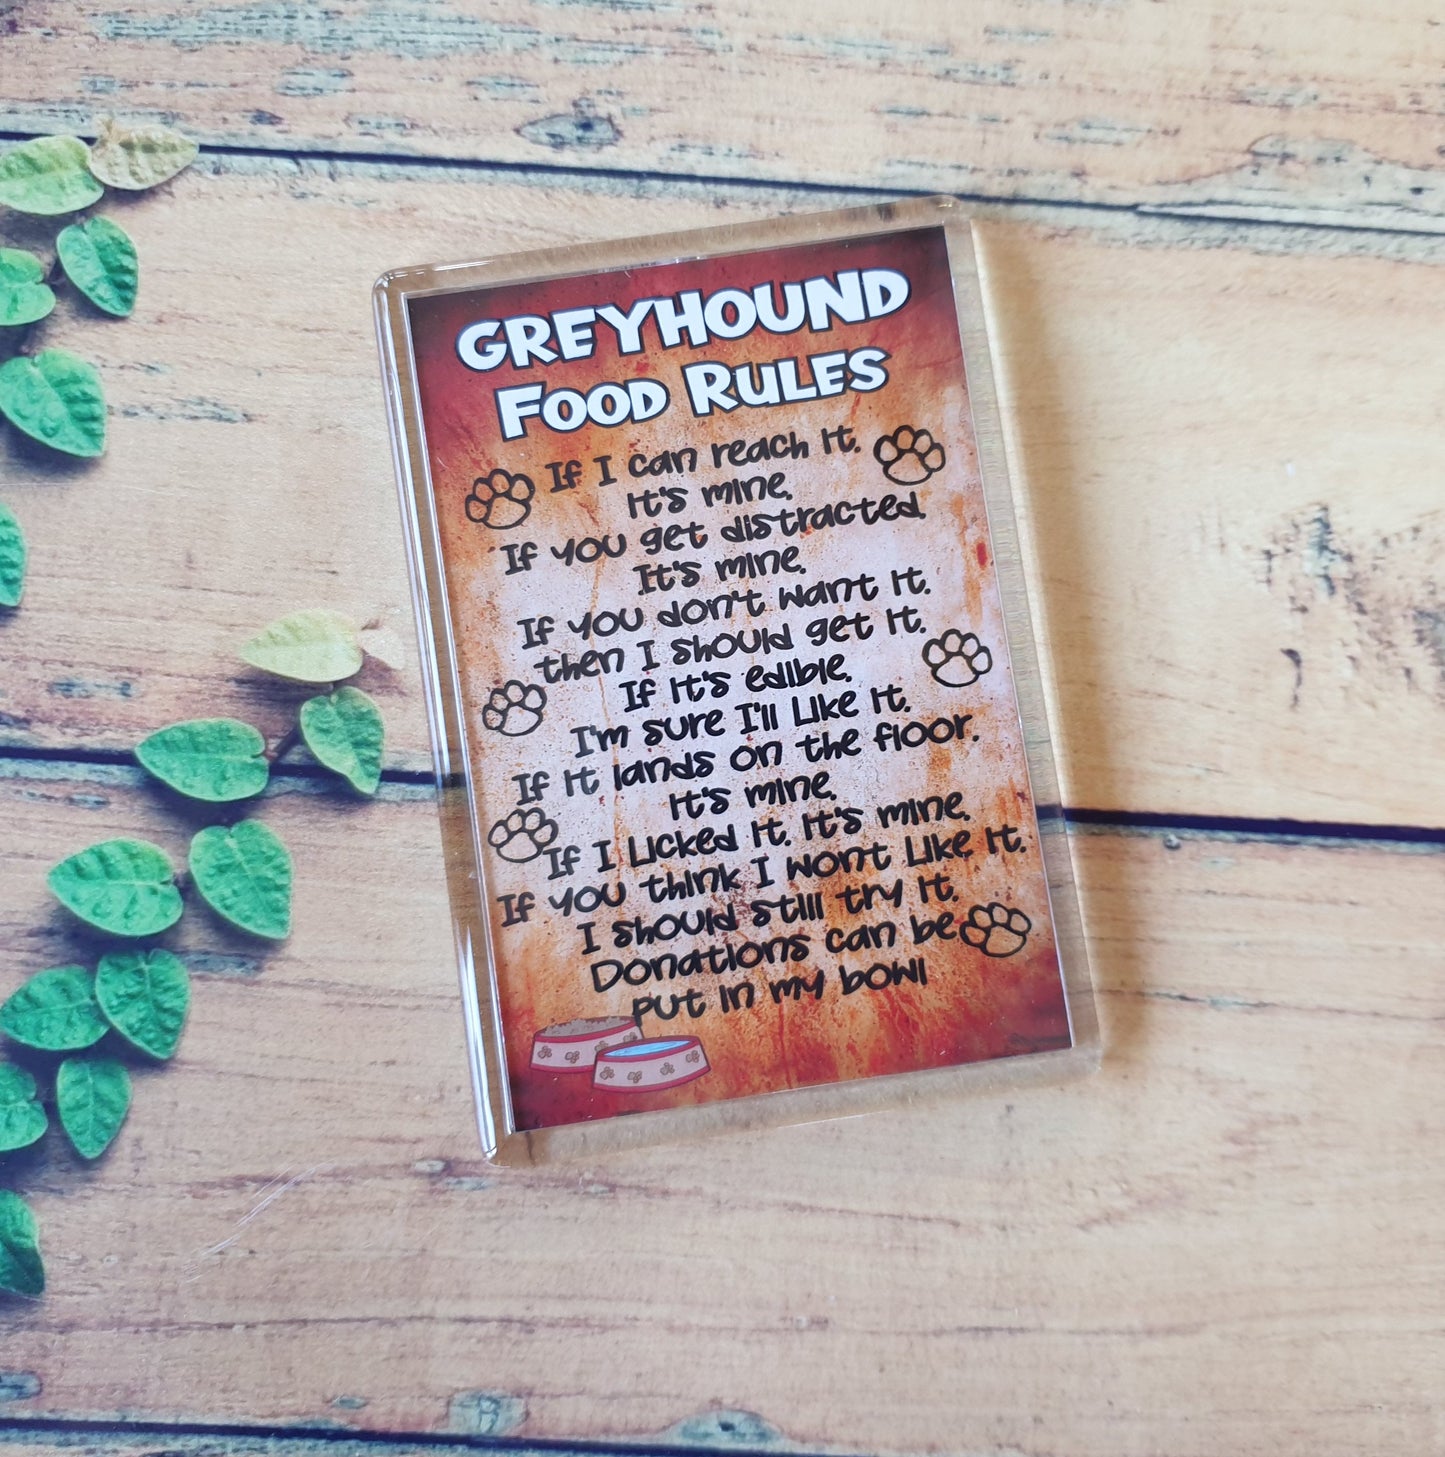 GREYHOUND
FOOD RULES
If I can reach it.
It's mine.
If you get distracted.
It's mine.
If you don't want it.
then I should get it.
If it's edible.
I'm sure I'll like it.
If it lands on the floor.
It's mine.
If I licked it. It's mine.
If you think I wont like it.
I should still try it.
Donations can be
put in my bowl